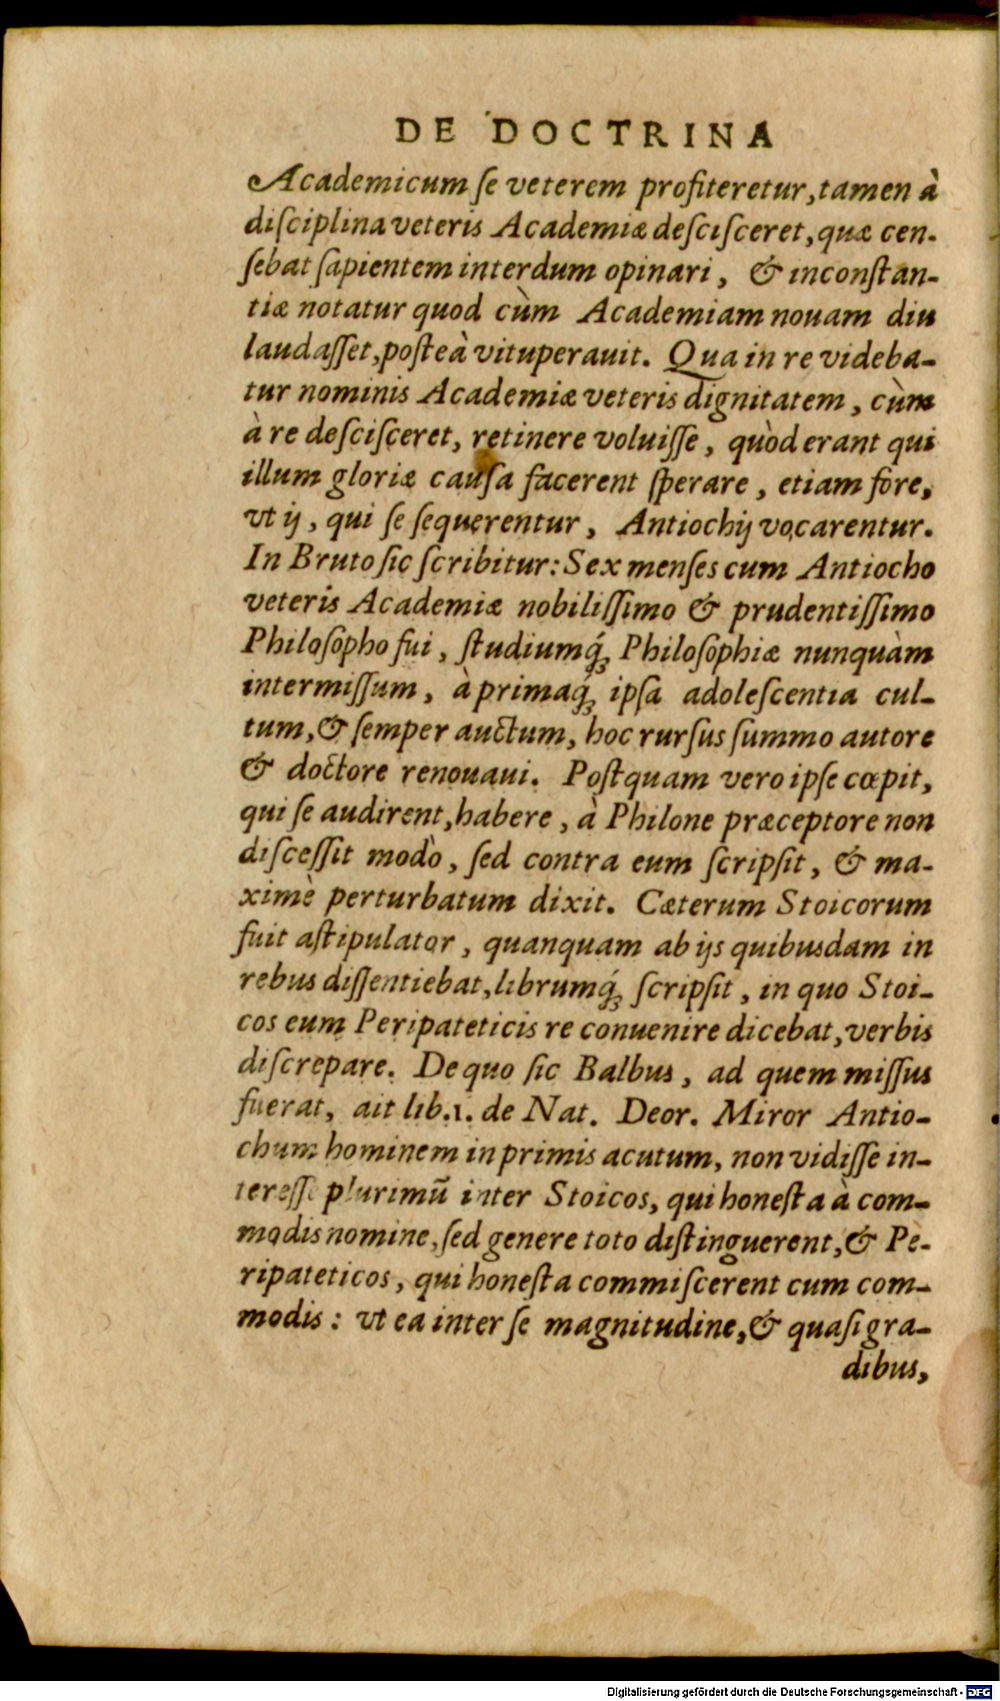 DE DOCTRINA
Academicum ſe veterem profiteretur, tamen à
diſciplina veteris Academiæ deſciſceret, quæ cen-
ſebat ſapientem interdum opinari, & inconſtan-
tiæ notatur quod cùm Academiam nouam diu
laudaſſet, poſteà vituperauit. Qua in re videba-
tur nominis Academiæ veteris dignitatem, cùm
à re deſciſceret, retinere voluiſſe, quòd erant qui
illum gloriæ cauſa facerent ſperare, etiam fore,
vt ij, qui ſe ſequerentur, Antiochij vocarentur.
In Bruto ſic ſcribitur: Sex menſes cum Antiocho
veteris Academiæ nobiliſſimo & prudentiſſimo
Philoſopho fui, ſtudiumq́; Philoſophiæ nunquàm
intermiſſum, à primaq́; ipſa adoleſcentia cul-
tum, & ſemper auctum, hoc rurſus ſummo autore
& doctore renouaui. Poſtquam vero ipſe cœpit,
qui ſe audirent, habere, à Philone præceptore non
diſceſſit modò, ſed contra eum ſcripſit, & ma-
ximè perturbatum dixit. Cæterum Stoicorum
fuit aſtipulator, quanquam ab ijs quibusdam in
rebus diſſentiebat, librumq́; ſcripſit, in quo Stoi-
cos eum Peripateticis re conuenire dicebat, verbis
diſcrepare. De quo ſic Balbus, ad quem miſſus
fuerat, ait lib.1. de Nat. Deor. Miror Antio-
chum hominem in primis acutum, non vidiſſe in-
tereſſe plurimũ inter Stoicos, qui honeſta à com-
modis nomine, ſed genere toto diſtinguerent, & Pe-
ripateticos, qui honeſta commiſcerent cum com-
modis: vt ea inter ſe magnitudine, & quaſi gra-
dibus,
Digitalisierung gefördert durch die Deutsche Forschungsgemeinschaft - DFG